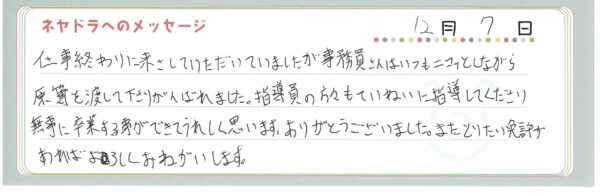 ネヤドラへのメッセージ
12月 7日
仕事終わりに来さしていただいていましたが事務員さんはいつもニコっとしながら
原簿を渡して下さりがんばれました。指導員の方々もていねいに指導してくださり
無事に卒業する事ができてうれしく思います。ありがとうございました。またとりたい免許が
あればよろしくおねがいします。